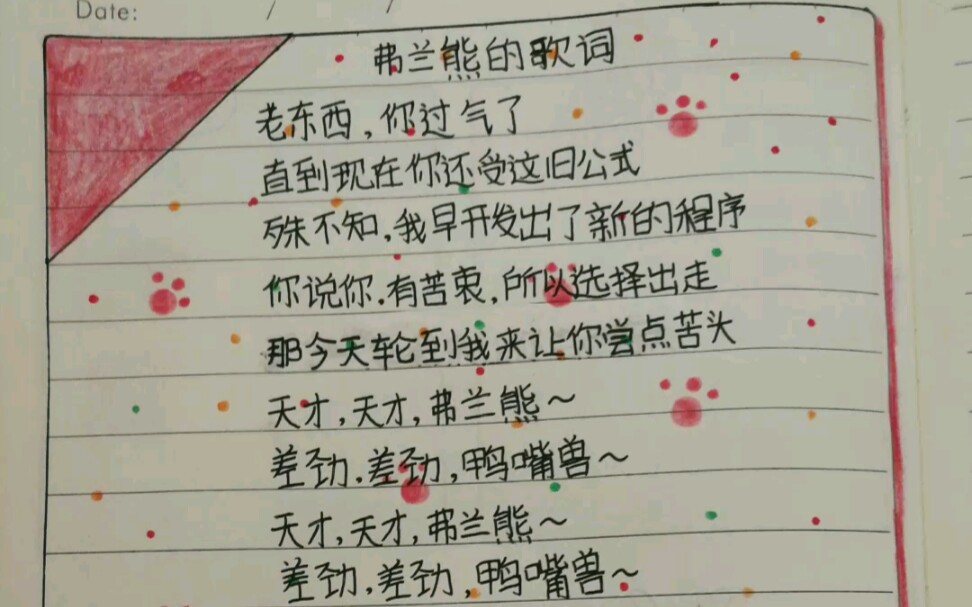 Date: / /
弗兰熊的歌词
老东西,你过气了
直到现在你还受这旧公式
殊不知,我早开发出了新的程序
你说你.有苦衷,所以选择出走
那今天轮到我来让你尝点苦头
天才,天才,弗兰熊~
差劲.差劲,鸭嘴兽~
天才,天才,弗兰熊~
差劲,差劲,鸭嘴兽~